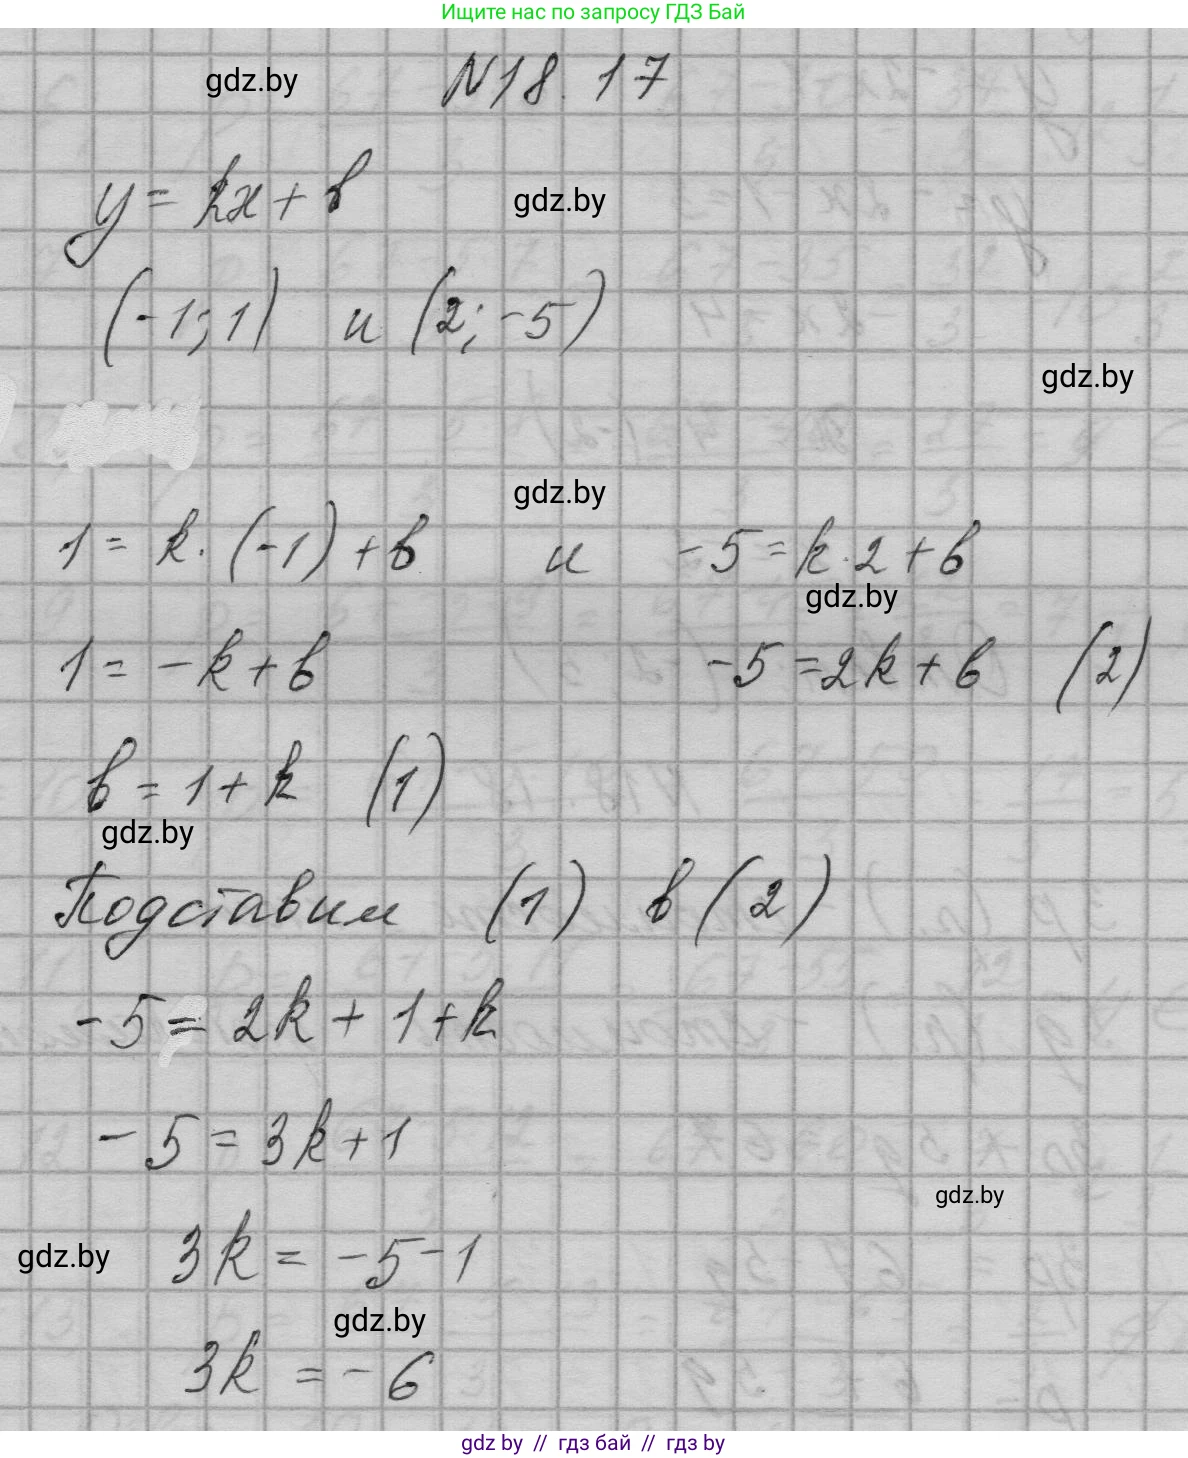 Ищите нас по запросу ГДЗ Бай
gdz.by N18.17
y = kx + b gdz.by
(-1; 1) и (2; -5)
gdz.by
gdz.by
1 = k · (-1) + b и -5 = k · 2 + b
gdz.by
1 = -k + b -5 = 2k + b (2)
b = 1 + k (1)
gdz.by
Подставим (1) в (2)
-5 = 2k + 1 + k
-5 = 3k + 1
gdz.by
gdz.by 3k = -5 - 1
gdz.by
3k = -6
gdz by // гдз бай // гдз by